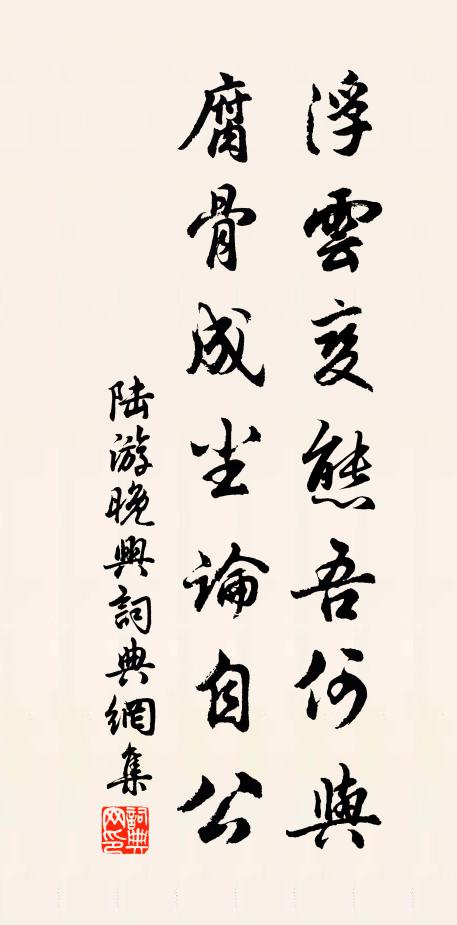 浮雲变態吾何與
腐骨成尘論自公
陆游晚興詞典網集
詞典網印